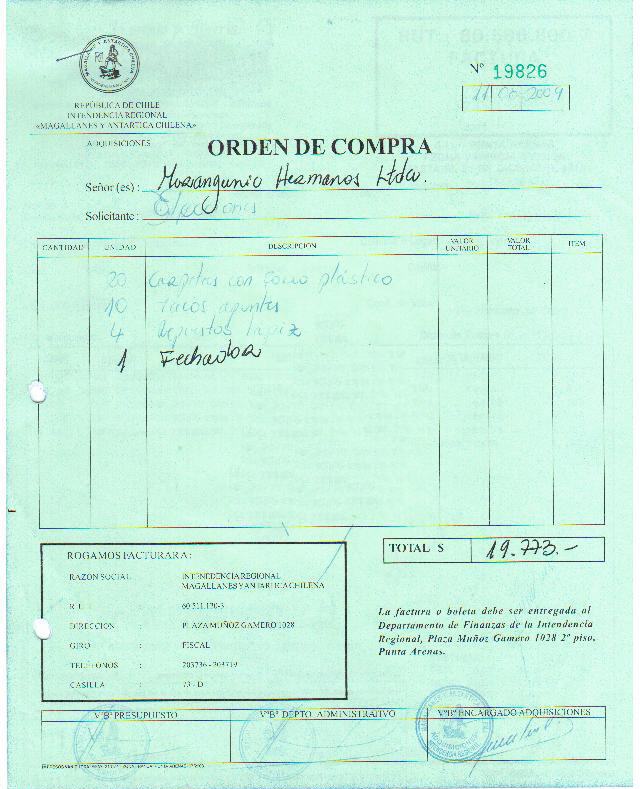 Nº 19826
REPÚBLICA DE CHILE
INTENDENCIA REGIONAL
«MAGALLANES Y ANTARTICA CHILENA»
ADQUISICIONES
ORDEN DE COMPRA
Señor (es) : Marangunic Hermanos Ltda.
Solicitante : Elecciones
CANTIDAD UNIDAD DESCRIPCION VALOR UNITARIO VALOR TOTAL ITEM
20 Carpetas con forro plástico
10 Tacos apuntes
4 Repuestos lapiz
1 Fechador
TOTAL $ 19.773.-
ROGAMOS FACTURAR A :
RAZON SOCIAL INTENEDENCIA REGIONAL
MAGALLANES Y ANTARTICA CHILENA
DIRECCION : PLAZA MUÑOZ GAMERO 1028
GIRO : FISCAL
TELÉFONOS : 203736 - 203719
CASILLA : 73 - D
La factura o boleta debe ser entregada al
Departamento de Finanzas de la Intendencia
Regional, Plaza Muñoz Gamero 1028 2º piso,
Punta Arenas.
VºBº PRESUPUESTO VºBº DEPTO. ADMINISTRATIVO VºBº ENCARGADO ADQUISICIONES